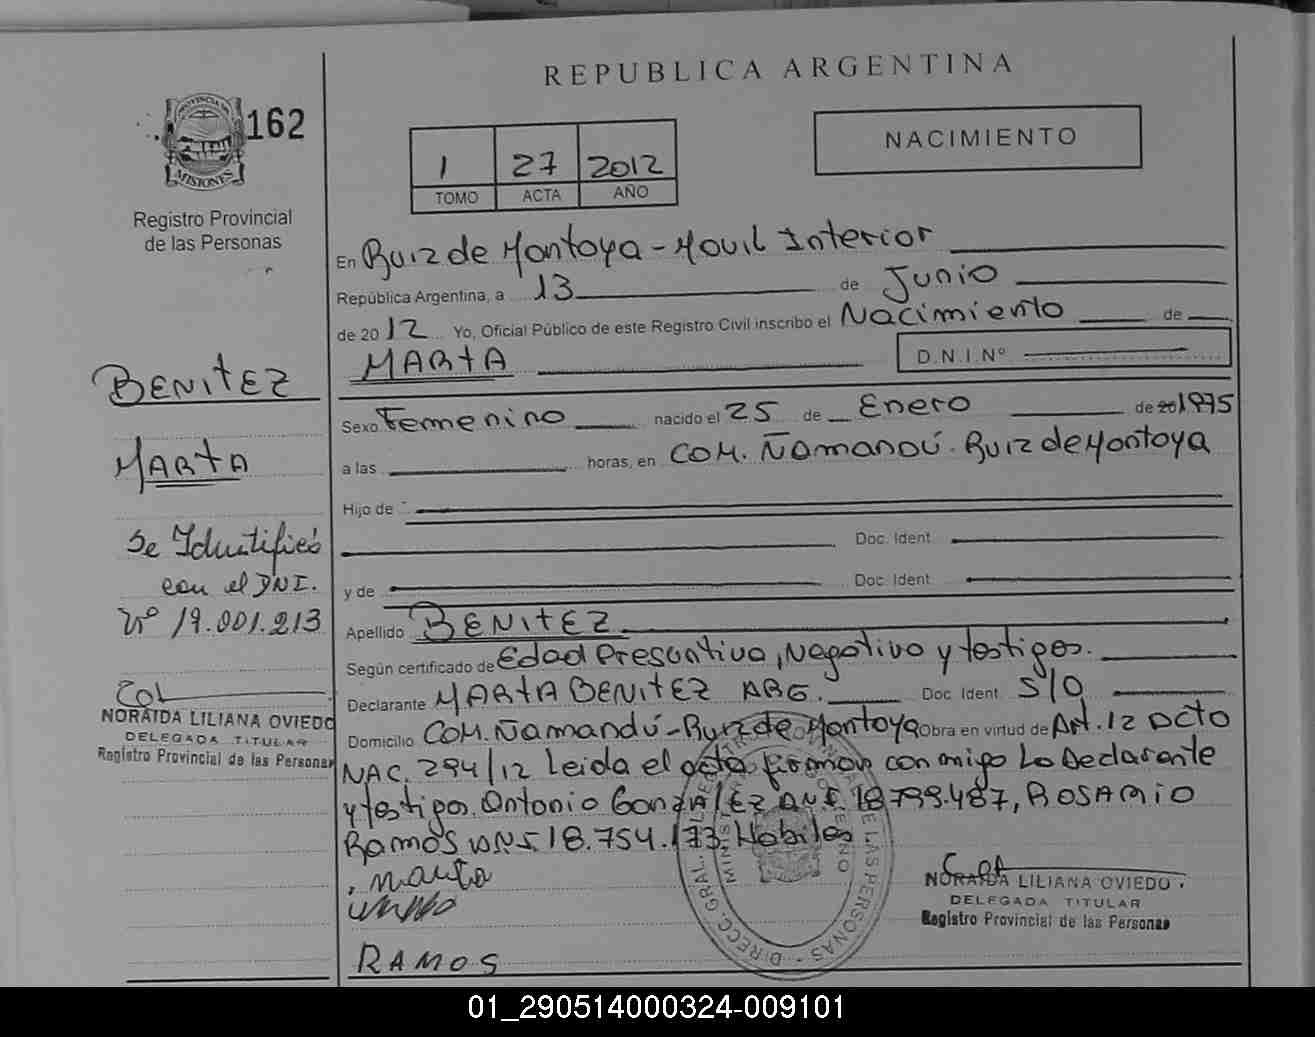 REPUBLICA ARGENTINA
PROVINCIA DE
MISIONES
162
Registro Provincial
de las Personas
1 27 2012
TOMO ACTA AÑO
NACIMIENTO
En Ruiz de Montoya - Movil Interior
República Argentina, a 13 de Junio
de 2012 Yo, Oficial Público de este Registro Civil inscribo el Nacimiento de
MARTA D.N.I.Nº
BENITEZ
MARTA
Se Identificó
con el DNI.
Nº 19.001.213
NORAIDA LILIANA OVIEDO
DELEGADA TITULAR
Registro Provincial de las Personas
Sexo Femenino nacido el 25 de Enero de 20 1975
a las horas, en COM. Ñamandú. Ruiz de Montoya
Hijo de
Doc. Ident.
y de Doc. Ident.
Apellido BENITEZ
Según certificado de Edad Presuntiva, Negativo y testigos.
Declarante MARTA BENITEZ ARG. Doc. Ident. S/D
Domicilio COM. Ñamandú - Ruiz de Montoya Obra en virtud de Art. 12 Dcto
NAC. 294/12 Leida el acta firman conmigo La Declarante
y testigos. Antonio GonzALEZ DNI. 18.799.487, ROSARIO
Ramos DNI. 18.754.173. Habiles
marta
RAMOS
NORAIDA LILIANA OVIEDO
DELEGADA TITULAR
Registro Provincial de las Personas
01_290514000324-009101